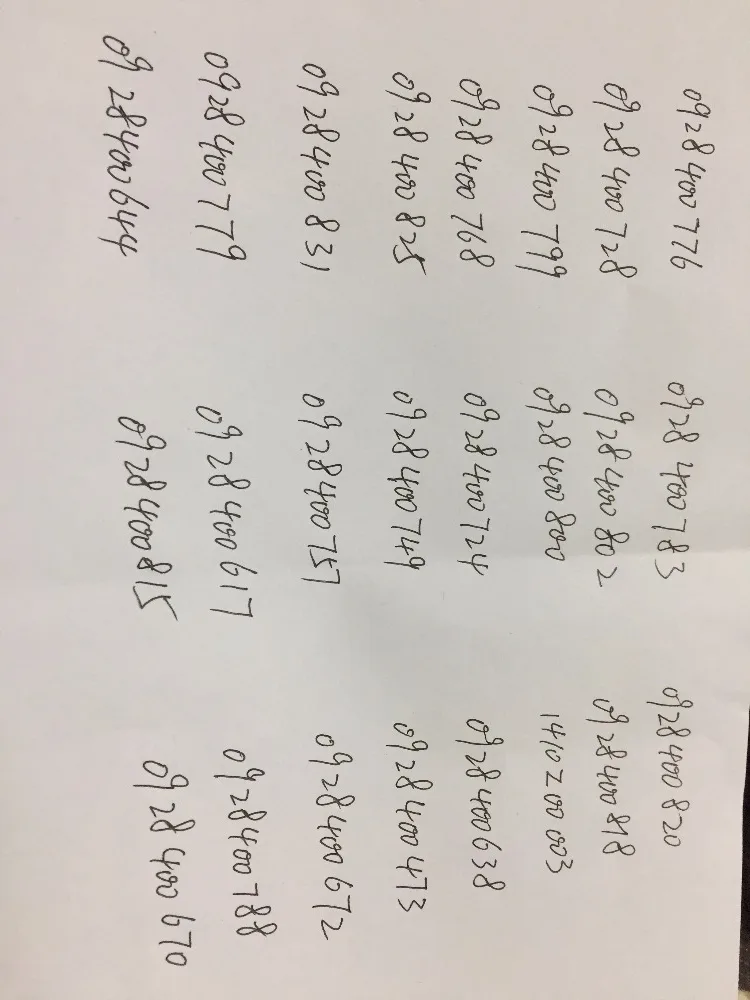 0928400776 0928400783 0928400820
0928400728 0928400802 0928400818
0928400799 0928400800 1410200003
0928400768 0928400724 0928400638
0928400825 0928400749 0928400473
0928400831 0928400757 0928400672
0928400779 0928400617 0928400788
0928400644 0928400815 0928400670